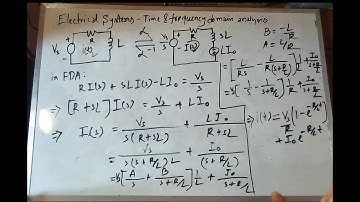 Electrical Systems - Time & frequency domain analysis
R
L
Vs
i(t)
α
α⁻¹
Vs/s
R
I(s)
SL
LIo
B = -L/R
A = L/R
in FDA:
R I(s) + SL I(s) - LIo = Vs/s
⇒ [R + SL] I(s) = Vs/s + LIo
⇒ I(s) = Vs / s(R+SL) + LIo / R+SL
= Vs / s(s+R/L)L + Io / (s+R/L)
= Vs [A/s + B/(s+R/L)] 1/L + Io/(s+R/L)
= [L/Rs - L/R(s+R/L)] Vs/L + Io/(s+R/L)
⇒ i(t) = Vs/R (1 - e^-R/L t) + Io e^-R/L t